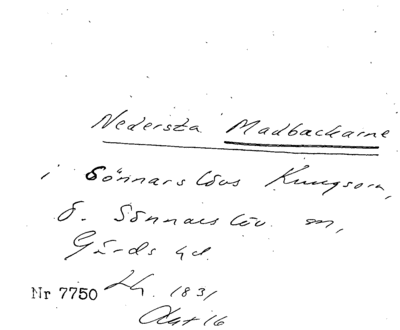 Nedersta Madbackarne
i Sönnarslövs Kungsorn,
Ö. Sönnarslöv sn,
Gärds hd.
Nr 7750 Lh. 1831
Akt 16